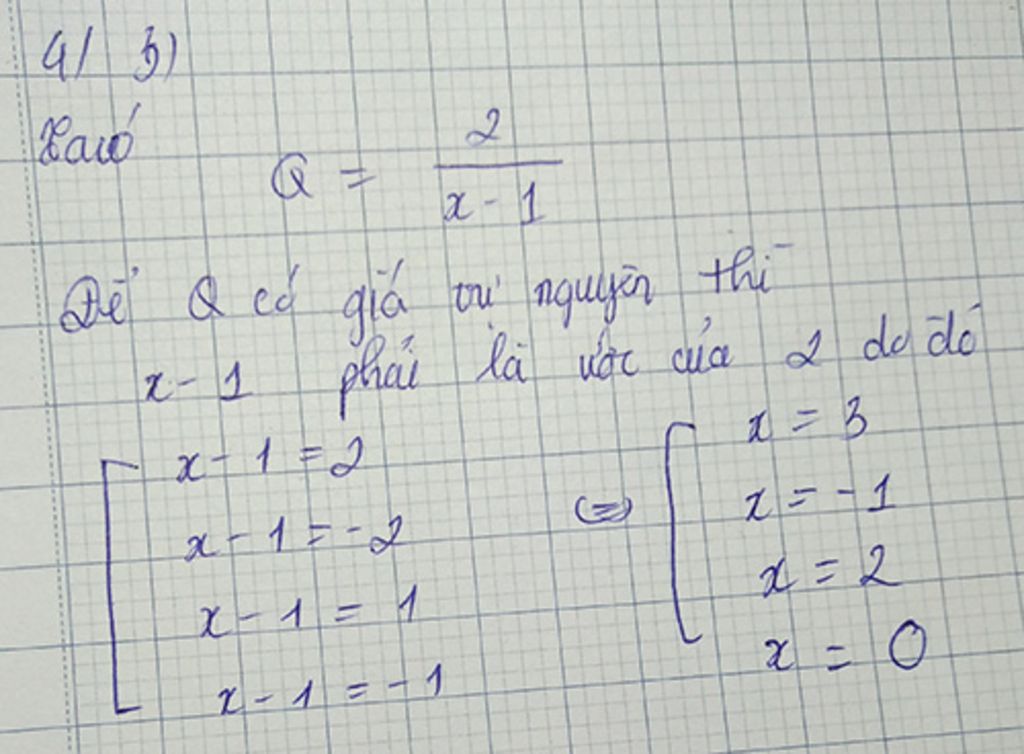 4/ b)
Ta có
Q = 2 / (x - 1)
Để Q có giá trị nguyên thì
x - 1 phải là ước của 2 do đó
x - 1 = 2 x = 3
x - 1 = -2 (=) x = -1
x - 1 = 1 x = 2
x - 1 = -1 x = 0